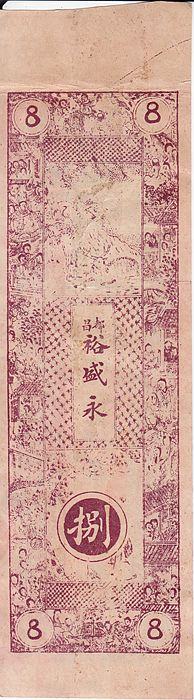 8 8
昌邑
裕盛永
捌
8 8